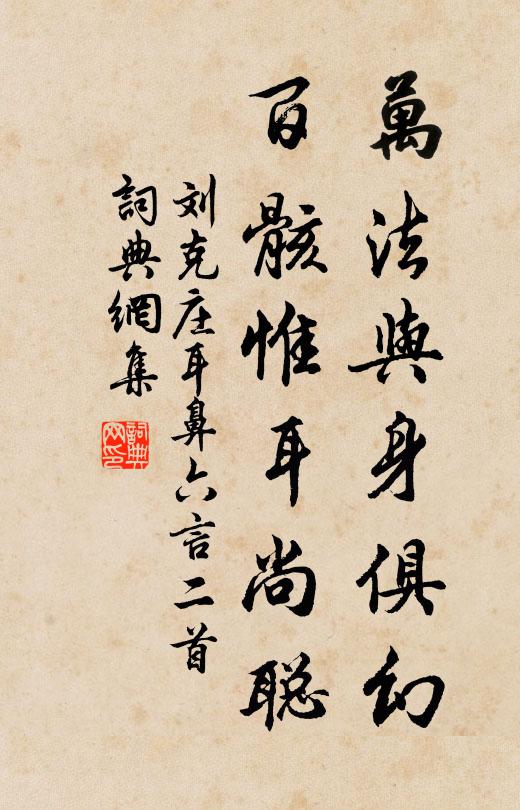 萬法與身俱幻
百骸惟耳尚聪
刘克庄耳鼻六言二首
詞典網集
詞典网印